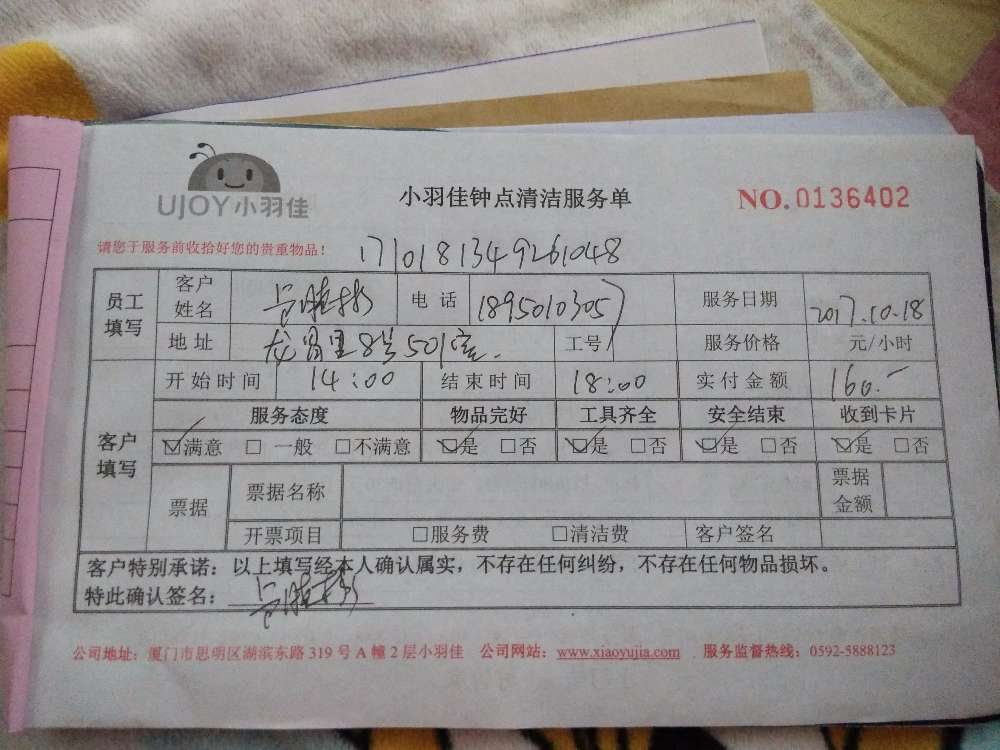 UJOY小羽佳
小羽佳钟点清洁服务单
NO.0136402
请您于服务前收拾好您的贵重物品!
1710181349261048
员工填写 客户姓名 电话 18950103057 服务日期 2017.10.18
地址 8号501室. 工号 服务价格 元/小时
客户填写 开始时间 14:00 结束时间 18:00 实付金额 160.-
服务态度 物品完好 工具齐全 安全结束 收到卡片
☑满意 □一般 □不满意 ☑是 □否 ☑是 □否 ☑是 □否 ☑是 □否
票据 票据名称 票据金额
开票项目 □服务费 □清洁费 客户签名
客户特别承诺:以上填写经本人确认属实,不存在任何纠纷,不存在任何物品损坏。
特此确认签名:
公司地址:厦门市思明区湖滨东路319号A幢2层小羽佳 公司网站:www.xiaoyujia.com 服务监督热线:0592-5888123